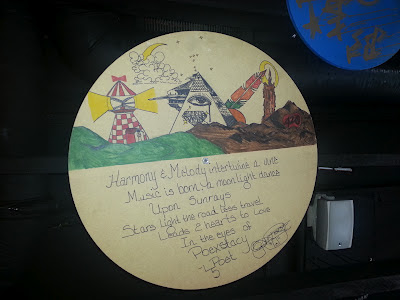 Harmony & Melody intertwine a vine
Music is born 4 a moon light dance
Upon Sunrays
Stars light the road less travel
Leads 2 hearts to Love
In the eyes of
Poexstacy
Poet